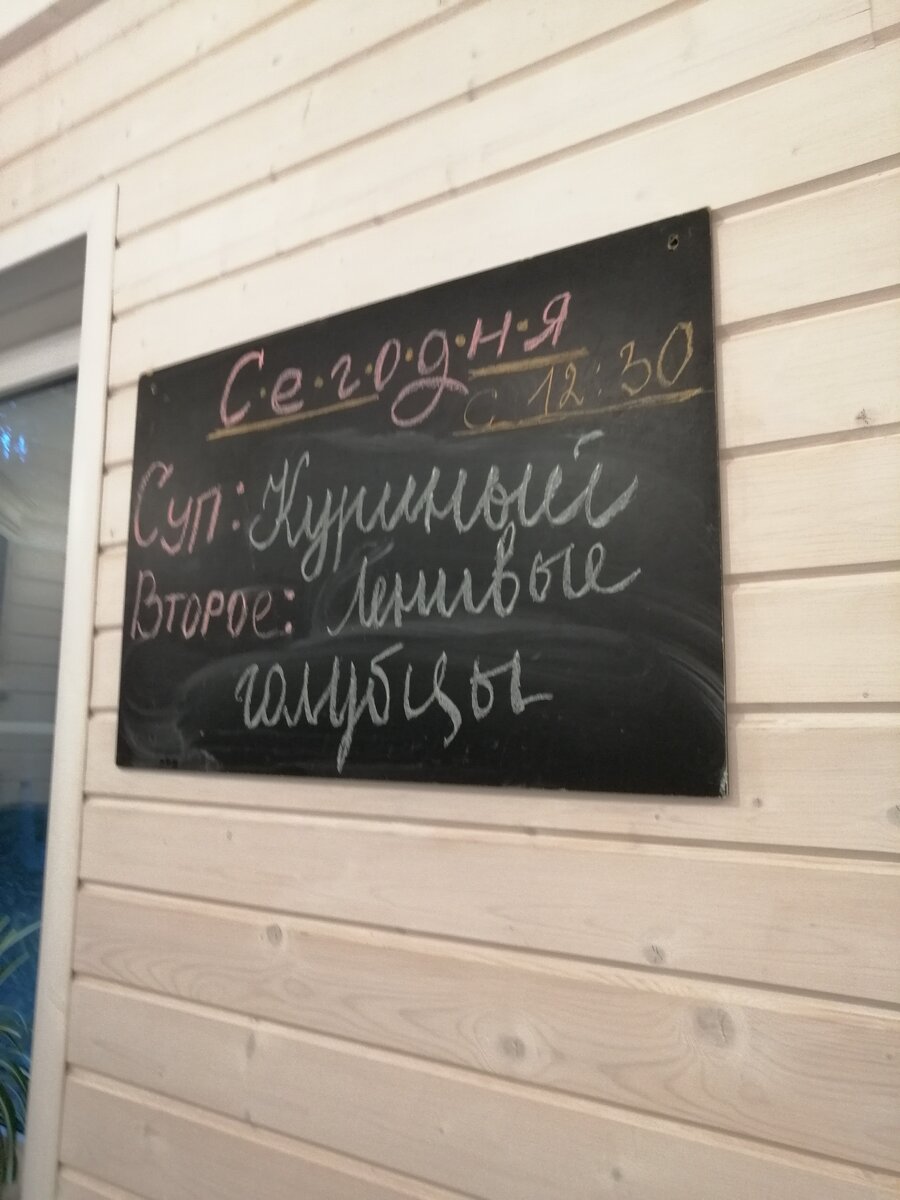 С·е·г·о·д·н·я
с 12:30
Суп: Куриный
Второе: Ленивые
голубцы